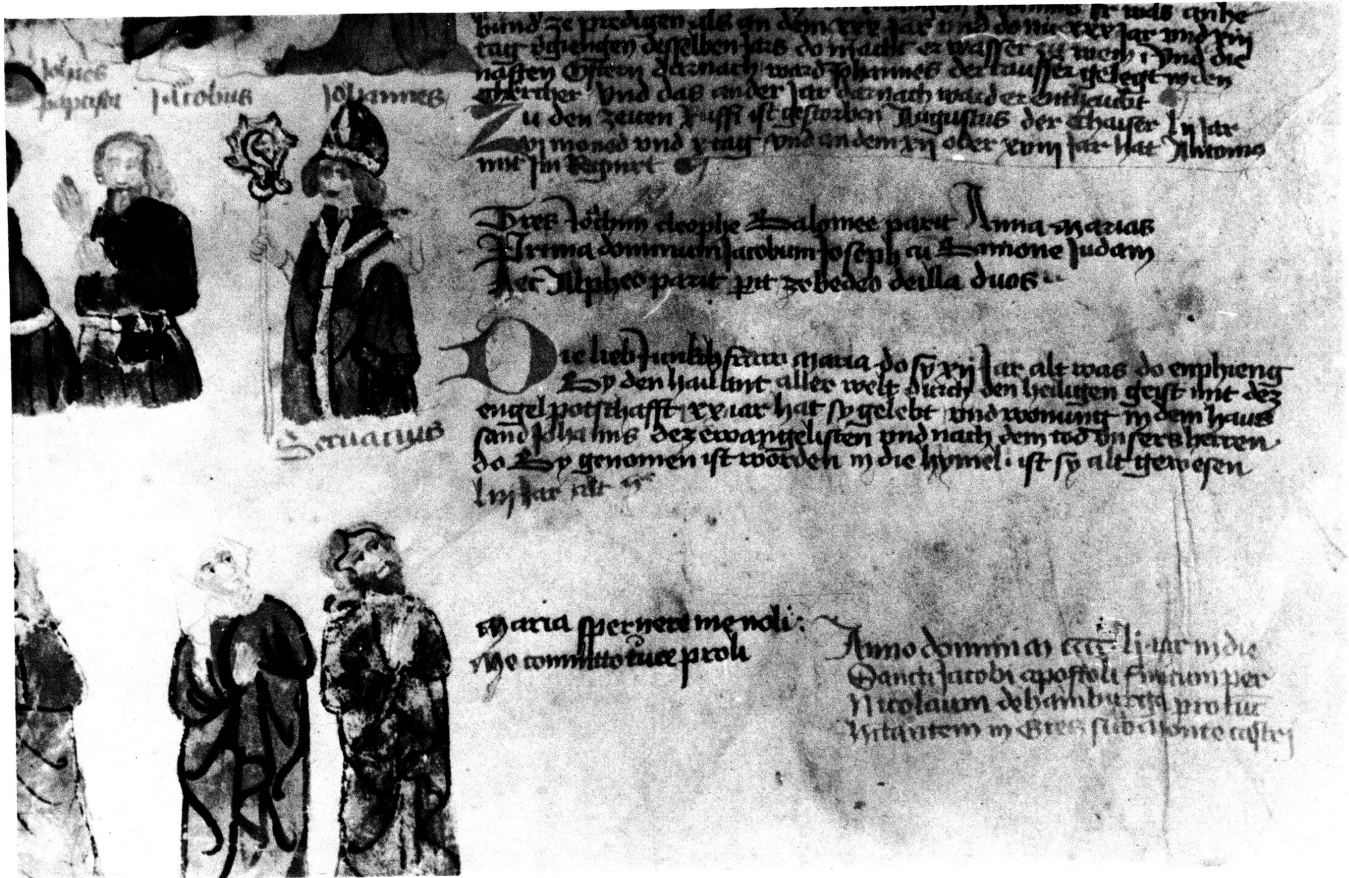 Johes
baptista Jacobus Johannes
Servatius
bund ze predigen als an dem xxx jar und do nu xxx jar vnd xiij
tag ergiengen desselben Jars do macht er wasser zu wein vnd die
nasten Ostern darnach ward Johannes der tauffer gelegt in den
chercher Vnd das ander Jar darnach ward er enthaubt
Zu den zeiten Ruffi ist gestorben Augustus der Chaiser lvj Jar
vj moned vnd x tag vnd an dem xij oder xviij Jar hat Antonio
mit Im Regnirt
Tres Jochim cleophe Salomee parit Anna marias
Prima dominum Jacobum Joseph cu Simone Judam
Fert Alpheo parit zebedeo de illa duos
Die lieb Junkch frau maria do sy xij Jar alt was do enphieng
Sy den hailant aller welt durch den heiligen geist mit dez
engel potschafft xx iar hat sy gelebt vnd wonung in dem haus
sand Johanns dez ewangelisten vnd nach dem tod vnsers herren
do Sy genomen ist worden in die hymel ist sy alt gewesen
lxiij Jar alt
Maria spernere me noli:
Me committo tuce proli
Anno domini m cccc li iar in die
Sancti Jacobi apostoli finitum per
Nicolaum de hamburga pro tuc
in Gres sub monte castri